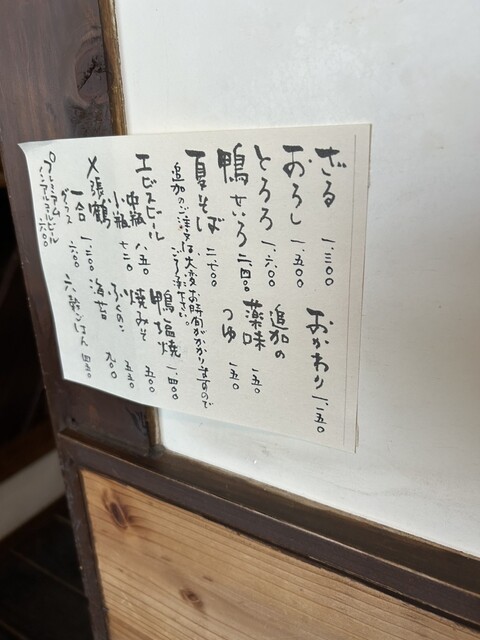 ざる 一、三〇〇
おろし 一、五〇〇
とろろ 一、六〇〇
鴨せいろ 二、四〇〇
夏そば 二、七〇〇
おかわり 一、一五〇
追加の
薬味 一五〇
つゆ 一五〇
追加のご注文は大変お時間がかかりますので
ご了承下さい。
エビスビール
中瓶 八五〇
小瓶 七二〇
〆張鶴
一合 一、二〇〇
グラス 六〇〇
プレミアム
ノンアルコールビール 六〇〇
鴨塩焼 一、四〇〇
焼みそ 五〇〇
ふくのこ 五五〇
海苔 九〇〇
六穀ごはん 四五〇